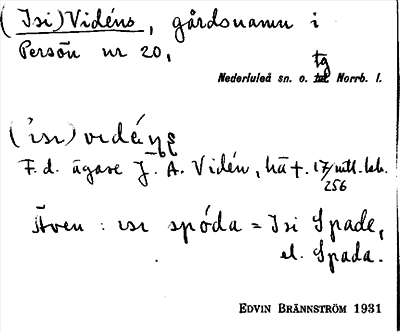 (Isi) Vidéns, gårdsnamn i
Persön nr 20,
tg
Nederluleå sn. o. Norrb. l.
('isi) vidę́ns
F. d. ägare J. A. Vidén, hä †. 17/
256
Även : isi spóda = Isi Spade,
el. Spada.
EDVIN BRÄNNSTRÖM 1931